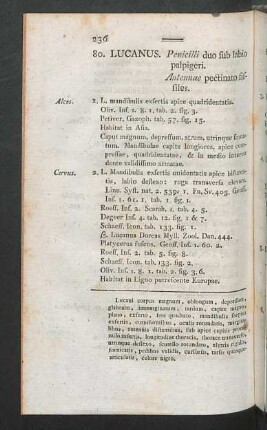 236
80. LUCANUS. Penicilli duo sub labio
palpigeri.
Antennae pectinato fis-
siles.
Alces. 1. L. mandibulis exsertis apice quadridentatis.
Oliv. Ins. 1. 8. 1. tab. 2. fig. 3.
Petiver. Gazoph. tab. 57. fig. 15.
Habitat in Asia.
Caput magnum, depressum, atrum, utrinque
tum. Mandibulae capite longiores, apice com-
pressae, quadridentatae, & in medio intus
dente validissimo armatae.
Cervus. 2. L. mandibulis exsertis unidentatis apice bifur-
catis, labio deflexo: ruga transversa elevata.
Linn. Syst. nat. 2. 559. 1. Fn. Sv. 405. Geoff.
Ins. 1. 61. 1. tab. 1. fig. 1.
Roes. Ins. 2. Scarab. 1. tab. 4. 5.
Degeer Ins. 4. tab. 12. fig. 1 & 7.
Schaeff. Icon. tab. 133. fig. 1.
β. Lucanus Dorcas Müll. Zool. Dan. 444.
Platycerus fuscus. Geoff. Ins. 1. 60. 2.
Roes. Ins. 2. tab. 5. fig. 8.
Schaeff. Icon. tab. 133. fig. 2.
Oliv. Ins. 1. 8. 1. tab. 2. fig. 3. 6.
Habitat in Ligno putrescente Europae.
Lucani corpus magnum, oblongum, depressum,
glabrum, immarginatum, tardum, capite magno,
plano, exserto, fere quadrato: mandibulis
exsertis, oculis rotundatis,
antennis distantibus, sub apice capitis
rotundatis, longitudine thoracis, thorace transverso,
utrinque deflexo, scutello parvo, rotundato, elytris
fornicatis, pedibus validis, tarsis quinque-
articulatis, colore nigro.